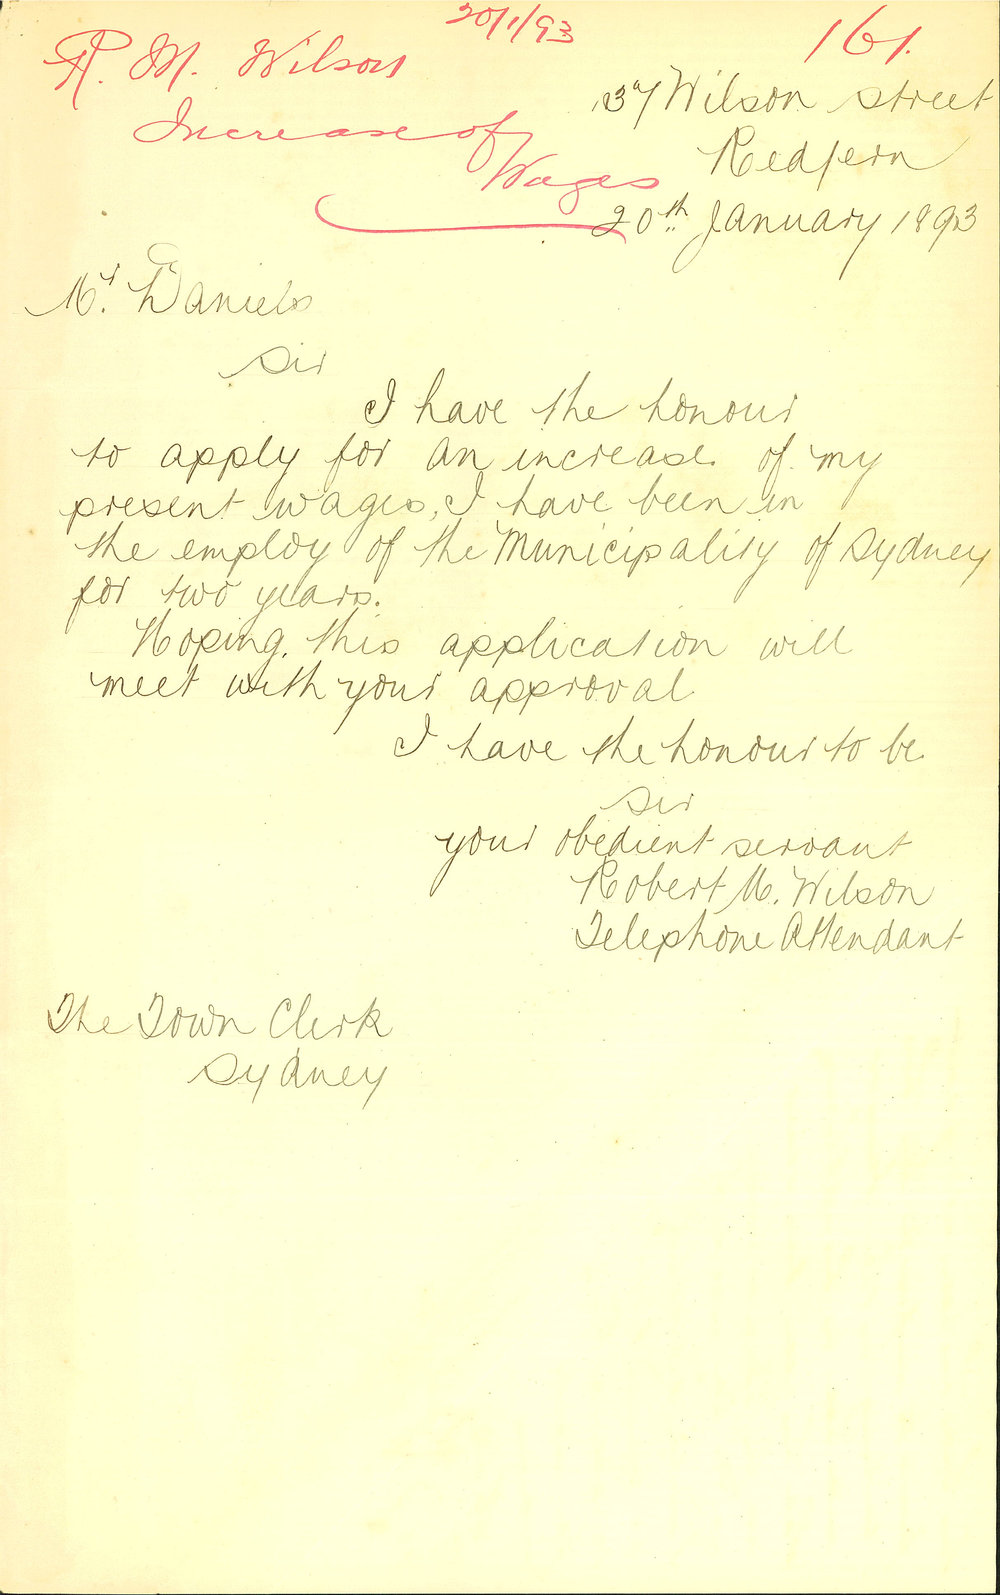 20/1/93
161.
R. M. Wilson
Increase of
Wages
37 Wilson street
Redfern
20th January 1893
Mr. Daniels
Sir
I have the honour
to apply for an increase of my
present wages, I have been in
the employ of the Municipality of Sydney
for two years.
Hoping this application will
meet with your approval
I have the honour to be
Sir
your obedient servant
Robert M. Wilson
Telephone Attendant
The Town Clerk
Sydney